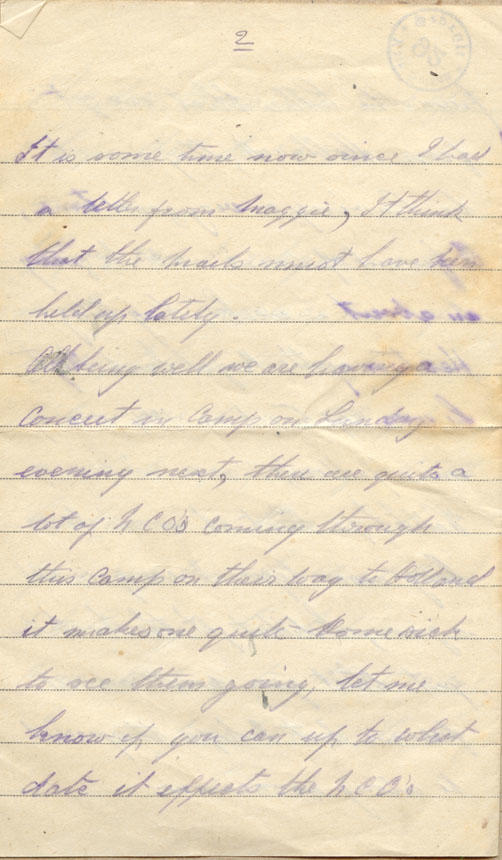 2
It is some time now since I had
a letter from Maggie, I think
that the mails must have been
held up lately.
All being well we are having a
Concert in Camp on Sunday
evening next, there are quite a
lot of NCO's coming through
this Camp on their way to Holland
it makes one quite homesick
to see them going, let me
know if you can up to what
date it effects the NCO's